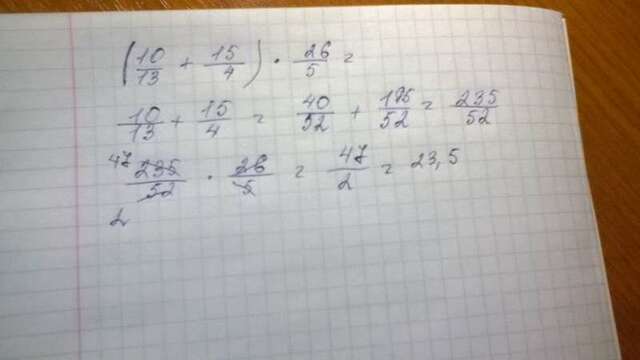 (10/13 + 15/4) · 26/5 =
10/13 + 15/4 = 40/52 + 195/52 = 235/52
47 235/52 · 26/5 = 47/2 = 23,5
2